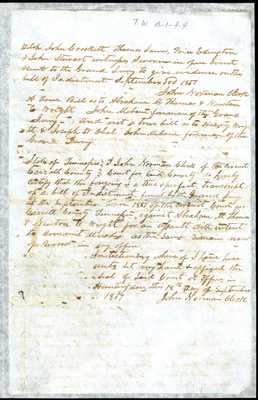 John Crockett Thomas
& John Stewart witnesses sworn in open Court
sent to the Grand Jury to give evidence on this
bill of Indictment September 3rd 1867
John Norman Clerk
A True Bill as to Abraham H Thomas & Newton
C Wright John McCain foreman of the Grand
Jury And not a true Bill as to
& Joseph John McCain foreman of the
Grand Jury
State of Tennessee I John Norman Clerk of the Circuit
Carroll County Court for said County do hereby
certify that the foregoing is a true & perfect transcript
of a bill of Indictment
at the September Term 1867 of the Circuit Court of
Carroll County Tennessee against Abraham H Thomas
& Newton C Wright for an assault with intent
to commit Murder as the same remain now
of Record in my office
In testimony whereof I have here
unto set my hand & affixed the
seal of said Court at office in
Huntingdon this 12th Day of September
1867 John Norman Clerk